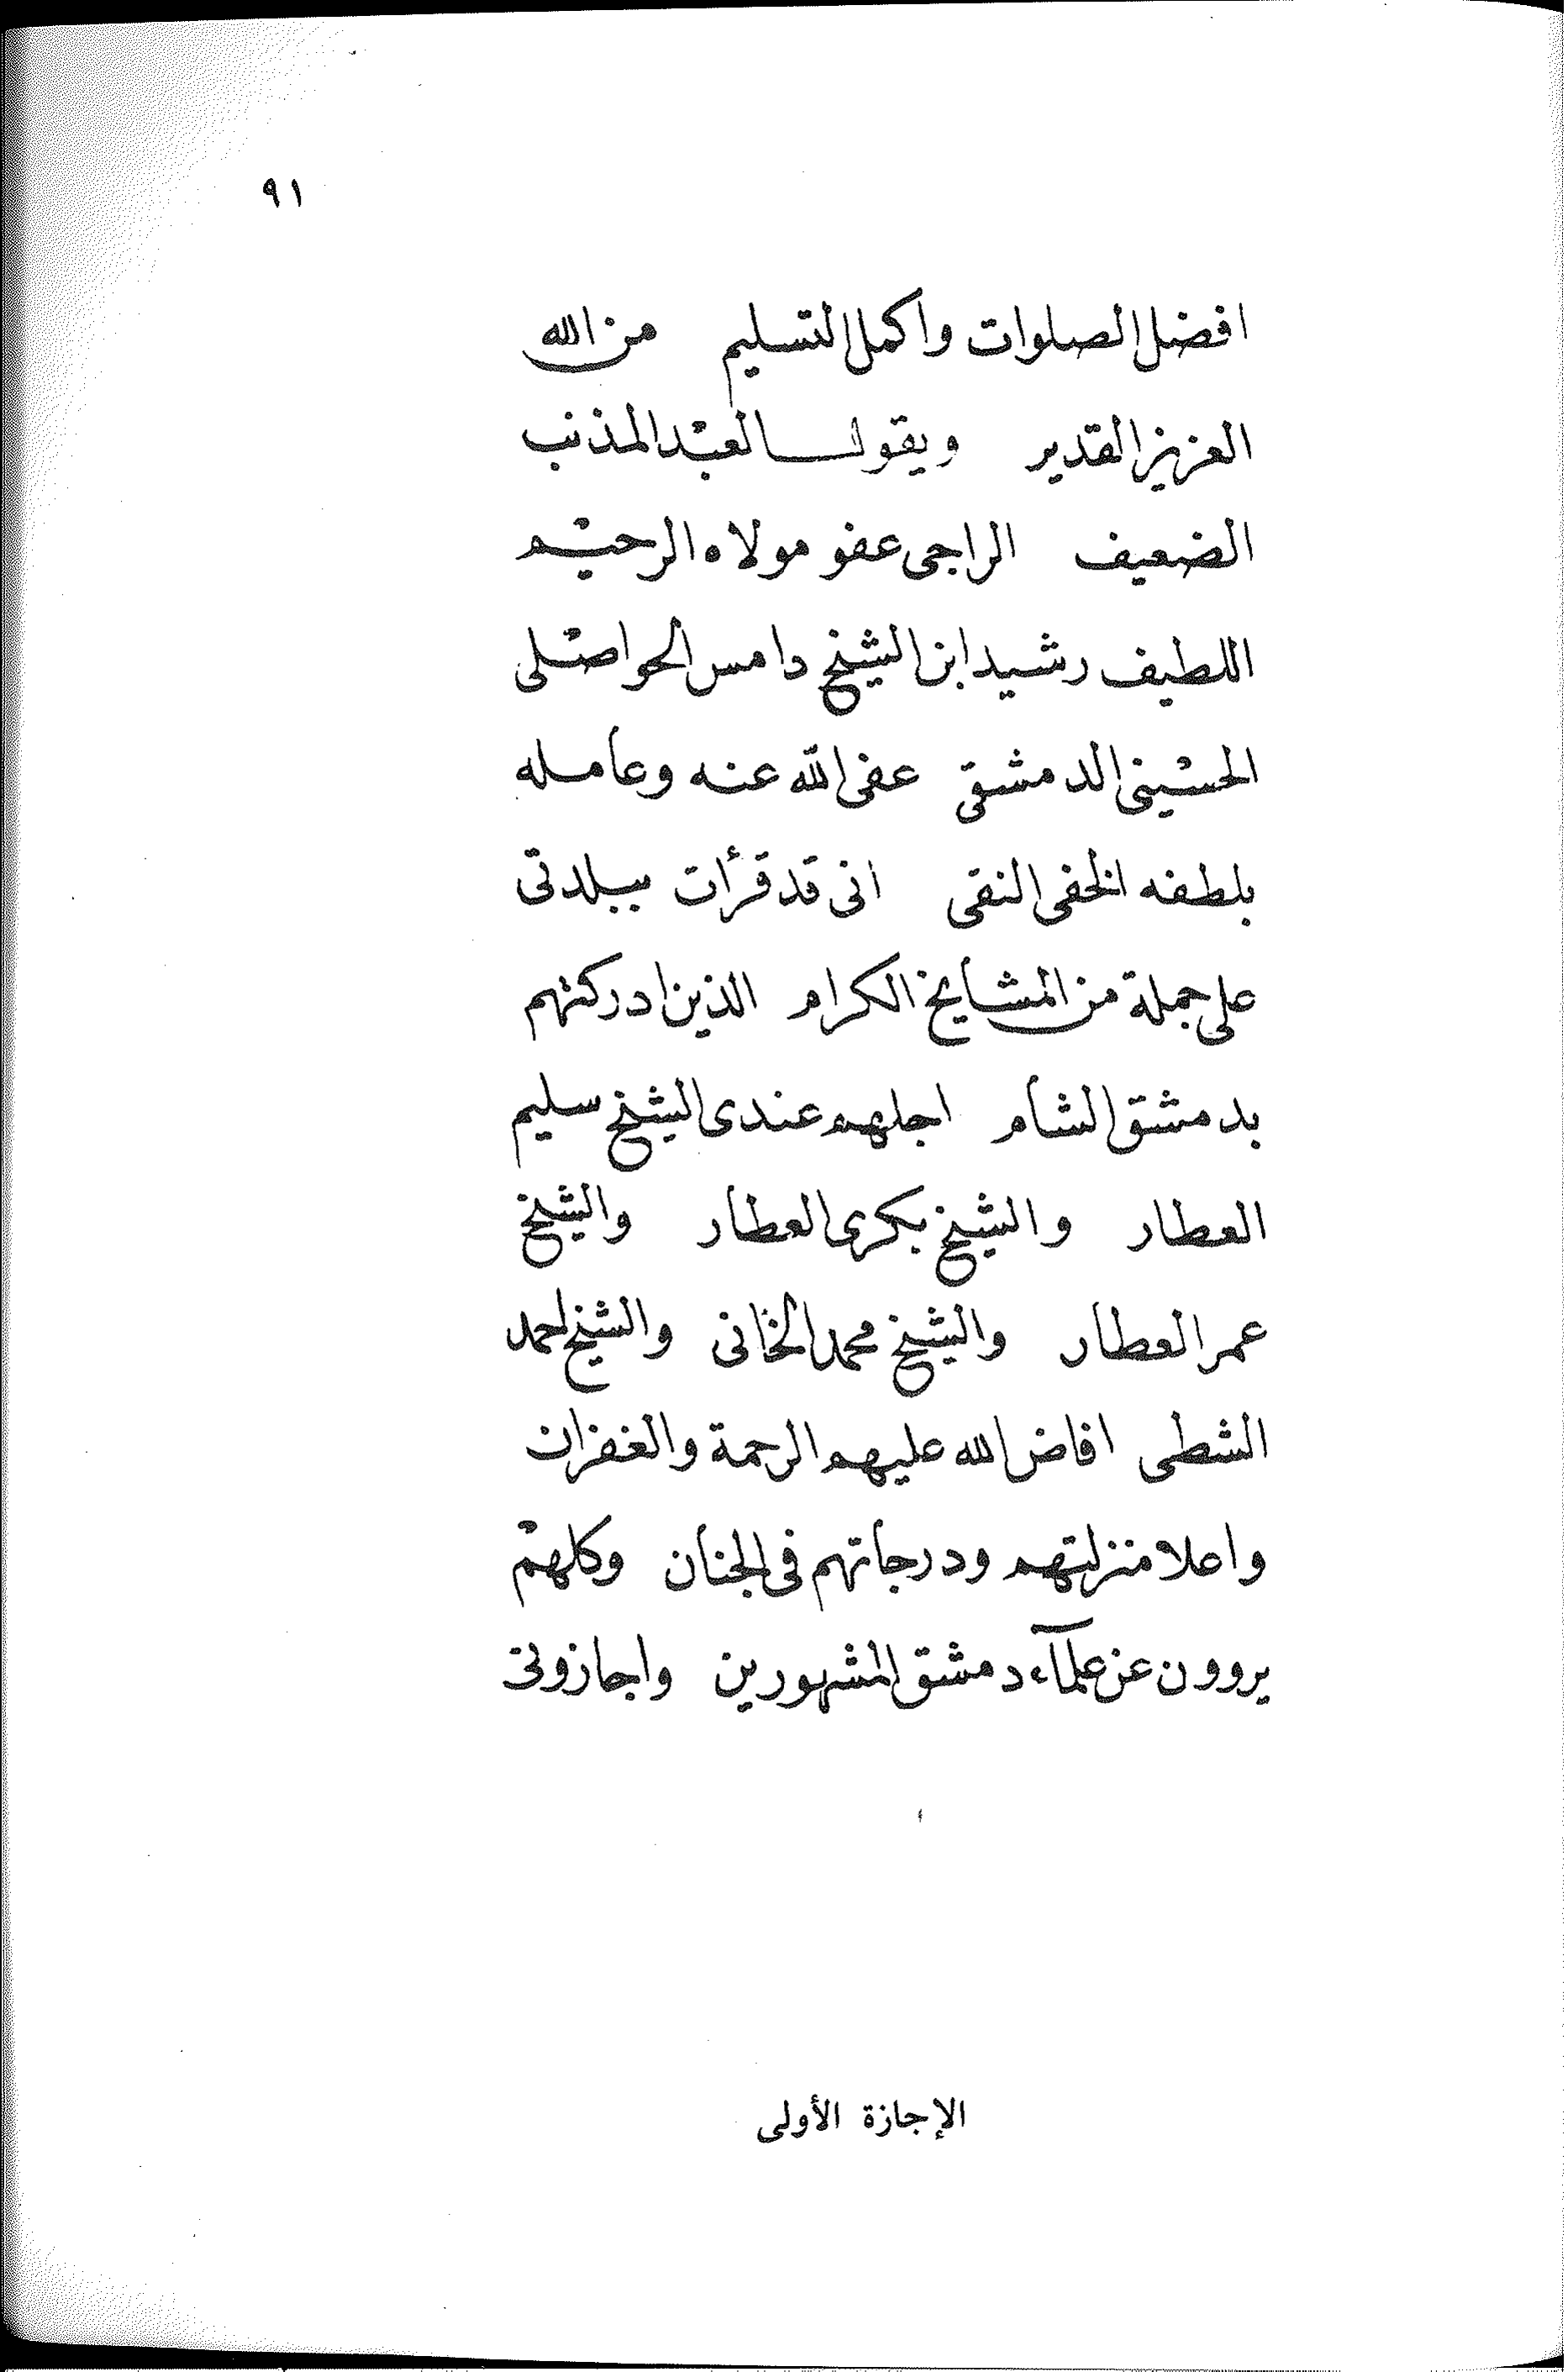 ٩١
افضل الصلوات واكمل التسليم من الله
العزيز القدير ويقول العبد المذنب
الضعيف الراجى عفو مولاه الرحيم
اللطيف رشيد ابن الشيخ دامس الحواصلى
الحسينى الدمشقى عفى الله عنه وعامله
بلطفه الخفى النقى انى قد قرأت ببلدتى
على جملة من المشايخ الكرام الذين ادركتهم
بدمشق الشام اجلهم عندى الشيخ سليم
العطار والشيخ بكرى العطار والشيخ
عمر العطار والشيخ محمد الخانى والشيخ احمد
الشطى افاض الله عليهم الرحمة والغفران
واعلا منزلتهم ودرجاتهم فى الجنان وكلهم
يروون عن علمآء دمشق المشهورين واجازونى
الإجازة الأولى